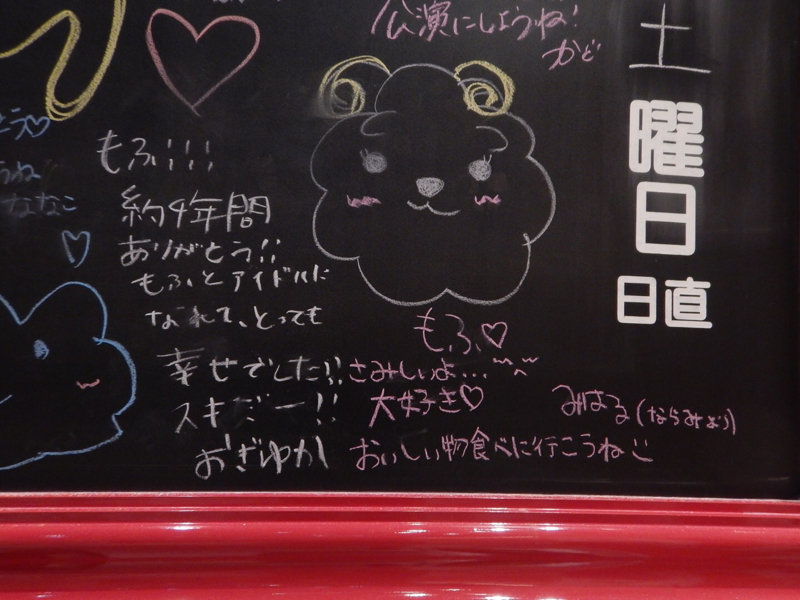 公演にしようね!
かど
土
曜
日
日直
うね
ななこ
もふ!!!
約4年間
ありがとう!!
もふとアイドルに
なれて、とっても
幸せでした!!
スキだー!!
おぎゆか
もふ♡
さみしいよ...
大好き♡
みはる(ならみより)
おいしい物食べに行こうね